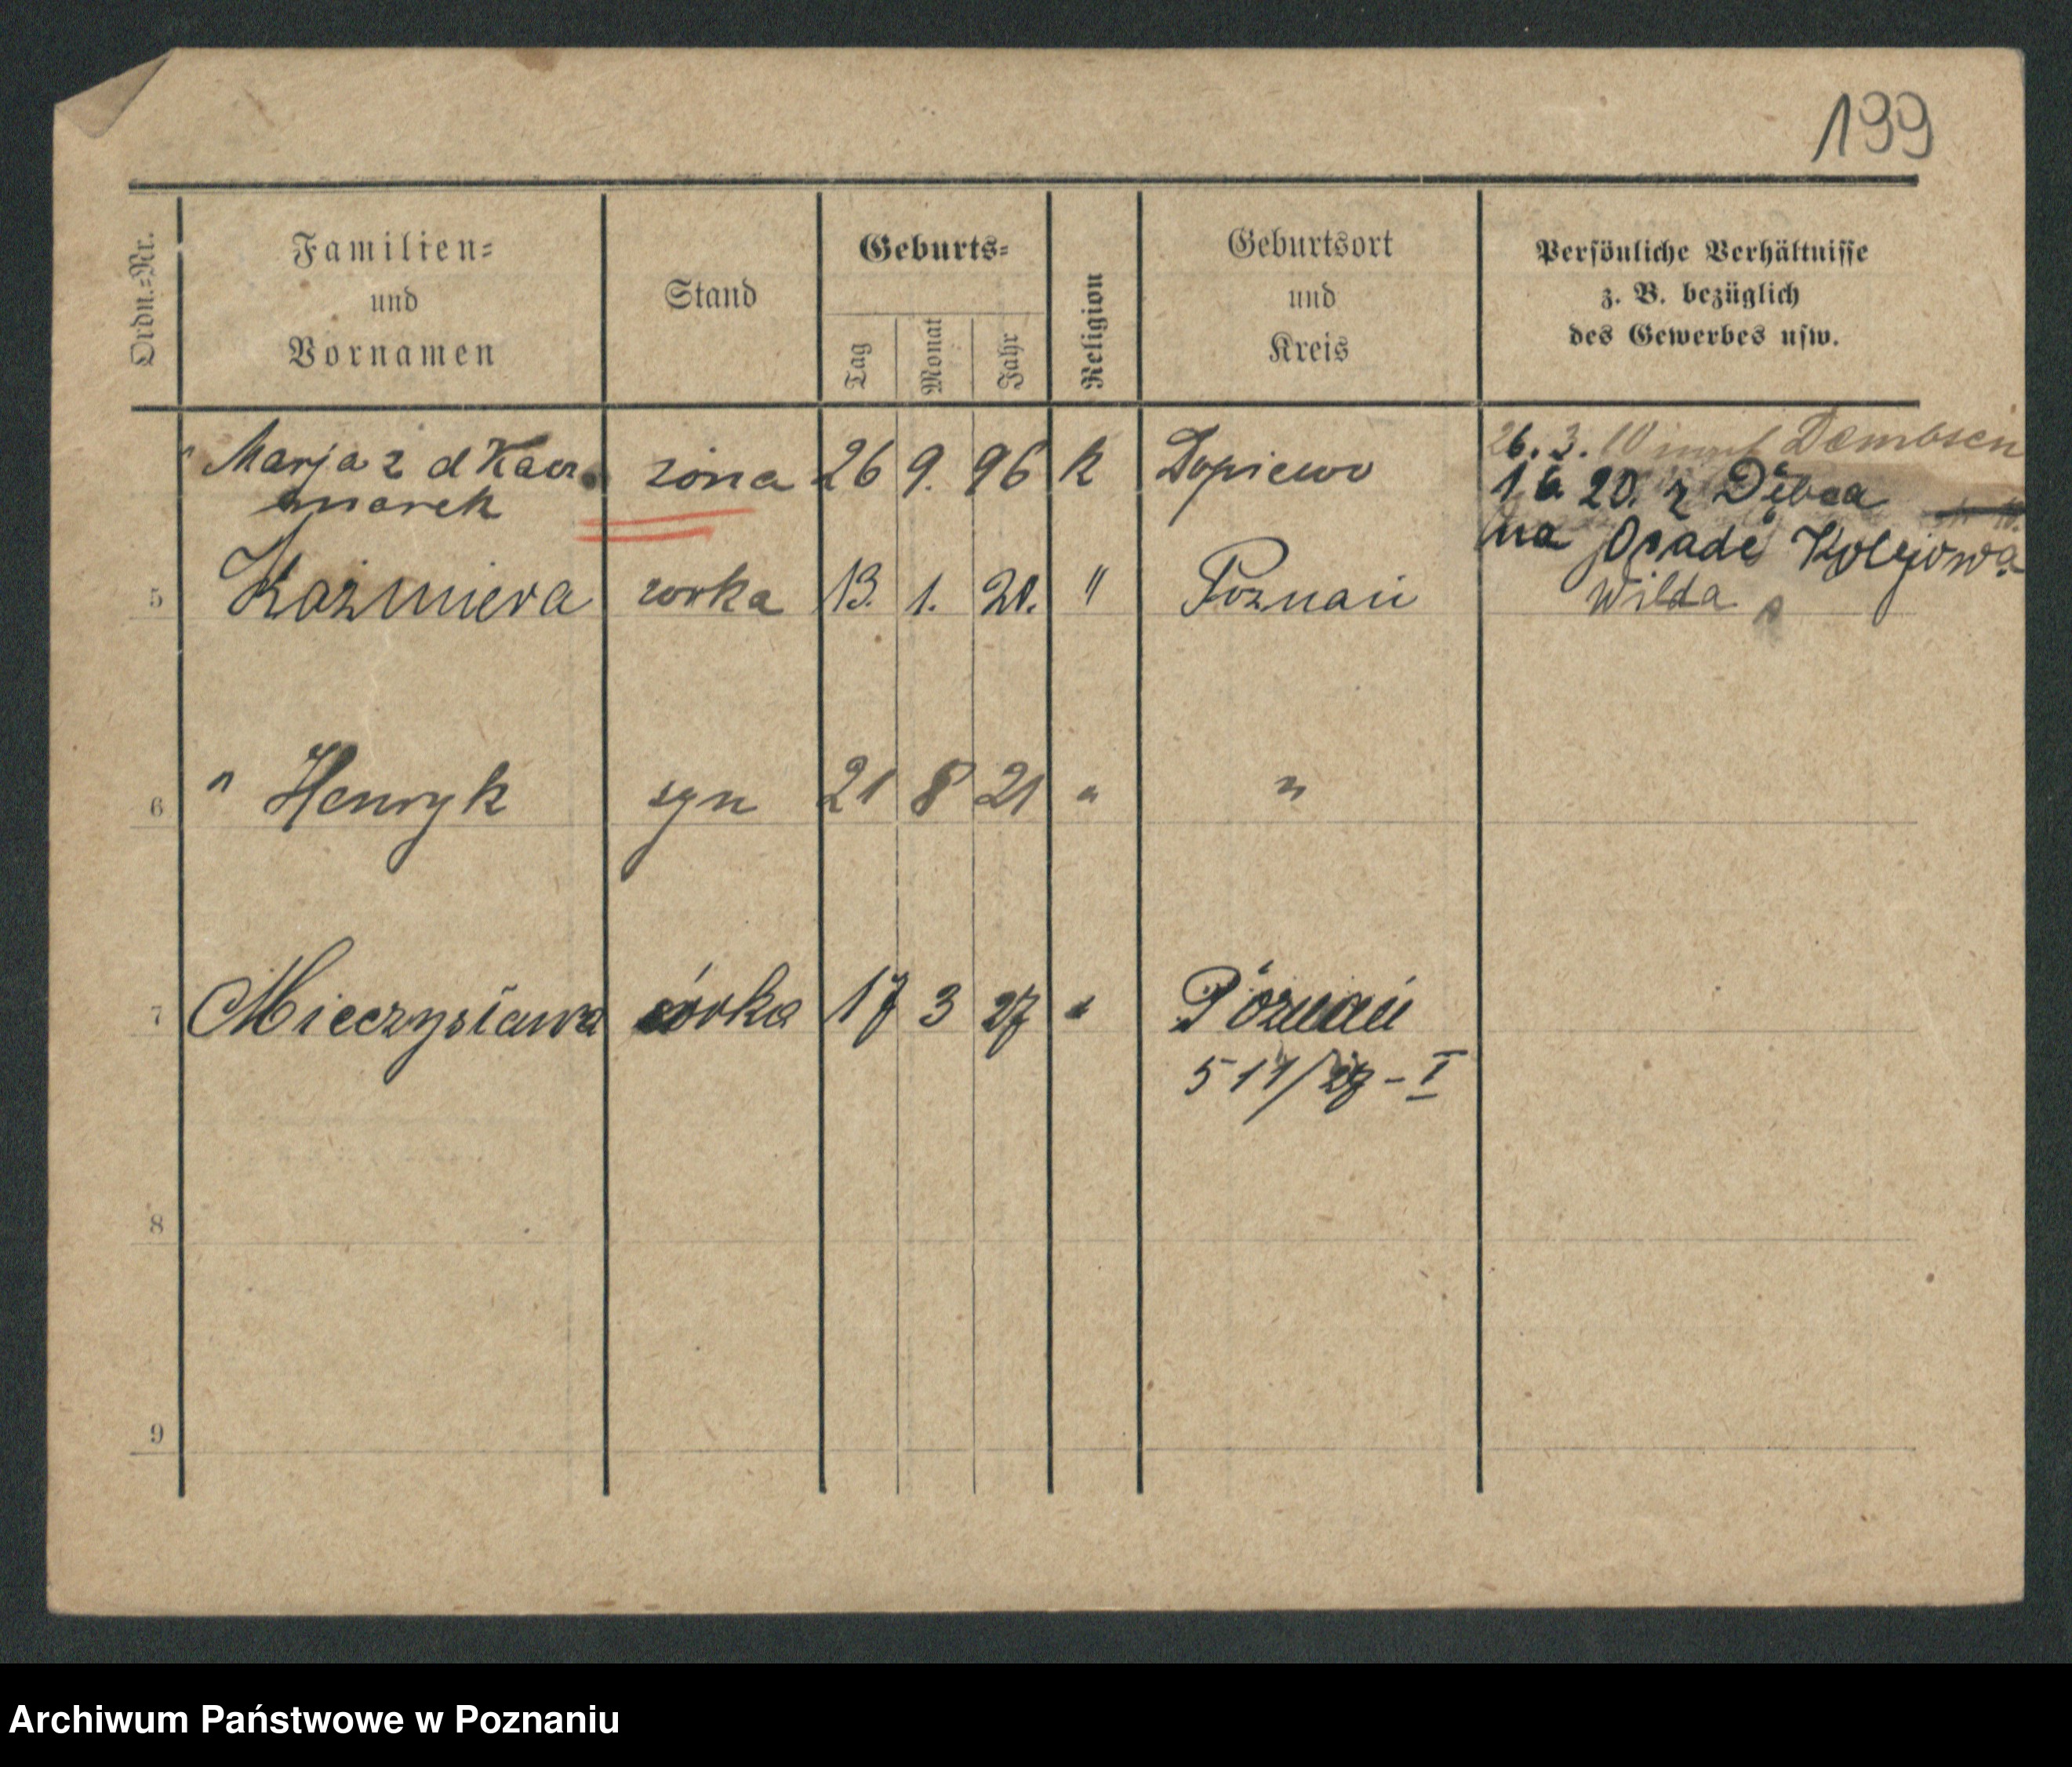 199
Ordn.=Nr.
Familien=
und
Vornamen
Stand
Geburts=
Tag
Monat
Jahr
Religion
Geburtsort
und
Kreis
Persönliche Verhältnisse
z. B. bezüglich
des Gewerbes usw.
" Marja z d Kacz
marek żona 26 9. 96 k Dopiewo
26. 3. 10 Dembsen
1 6 20. z Dębca
na Osadę Kolejową
Wilda
5 Kaźmiera corka 13. 1. 20. " Poznań
6 " Henryk syn 21 8 21 " "
7 Mieczysława córka 17 3 27 " Poznań
511/27 - I
8
9
Archiwum Państwowe w Poznaniu